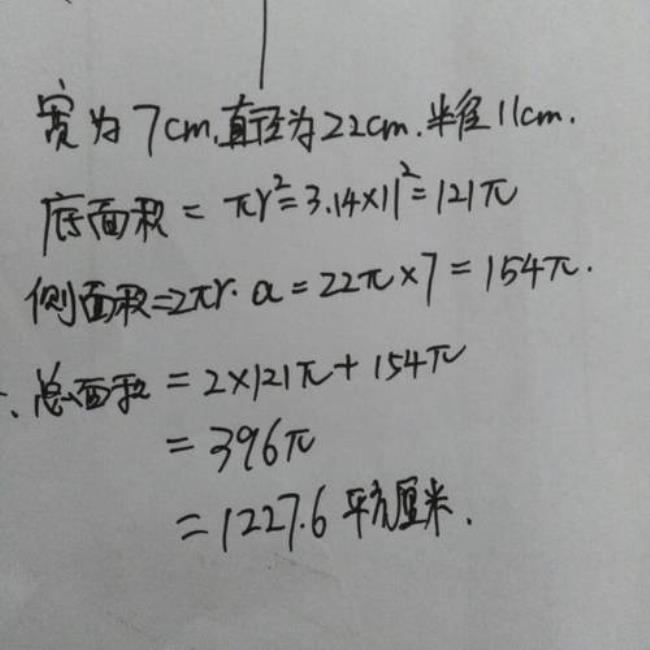 宽为7cm,直径为22cm.半径11cm.
底面积=πr²=3.14×11²=121π
侧面积=2πr·a=22π×7=154π.
∴总面积=2×121π+154π
=396π
=1227.6平方厘米.